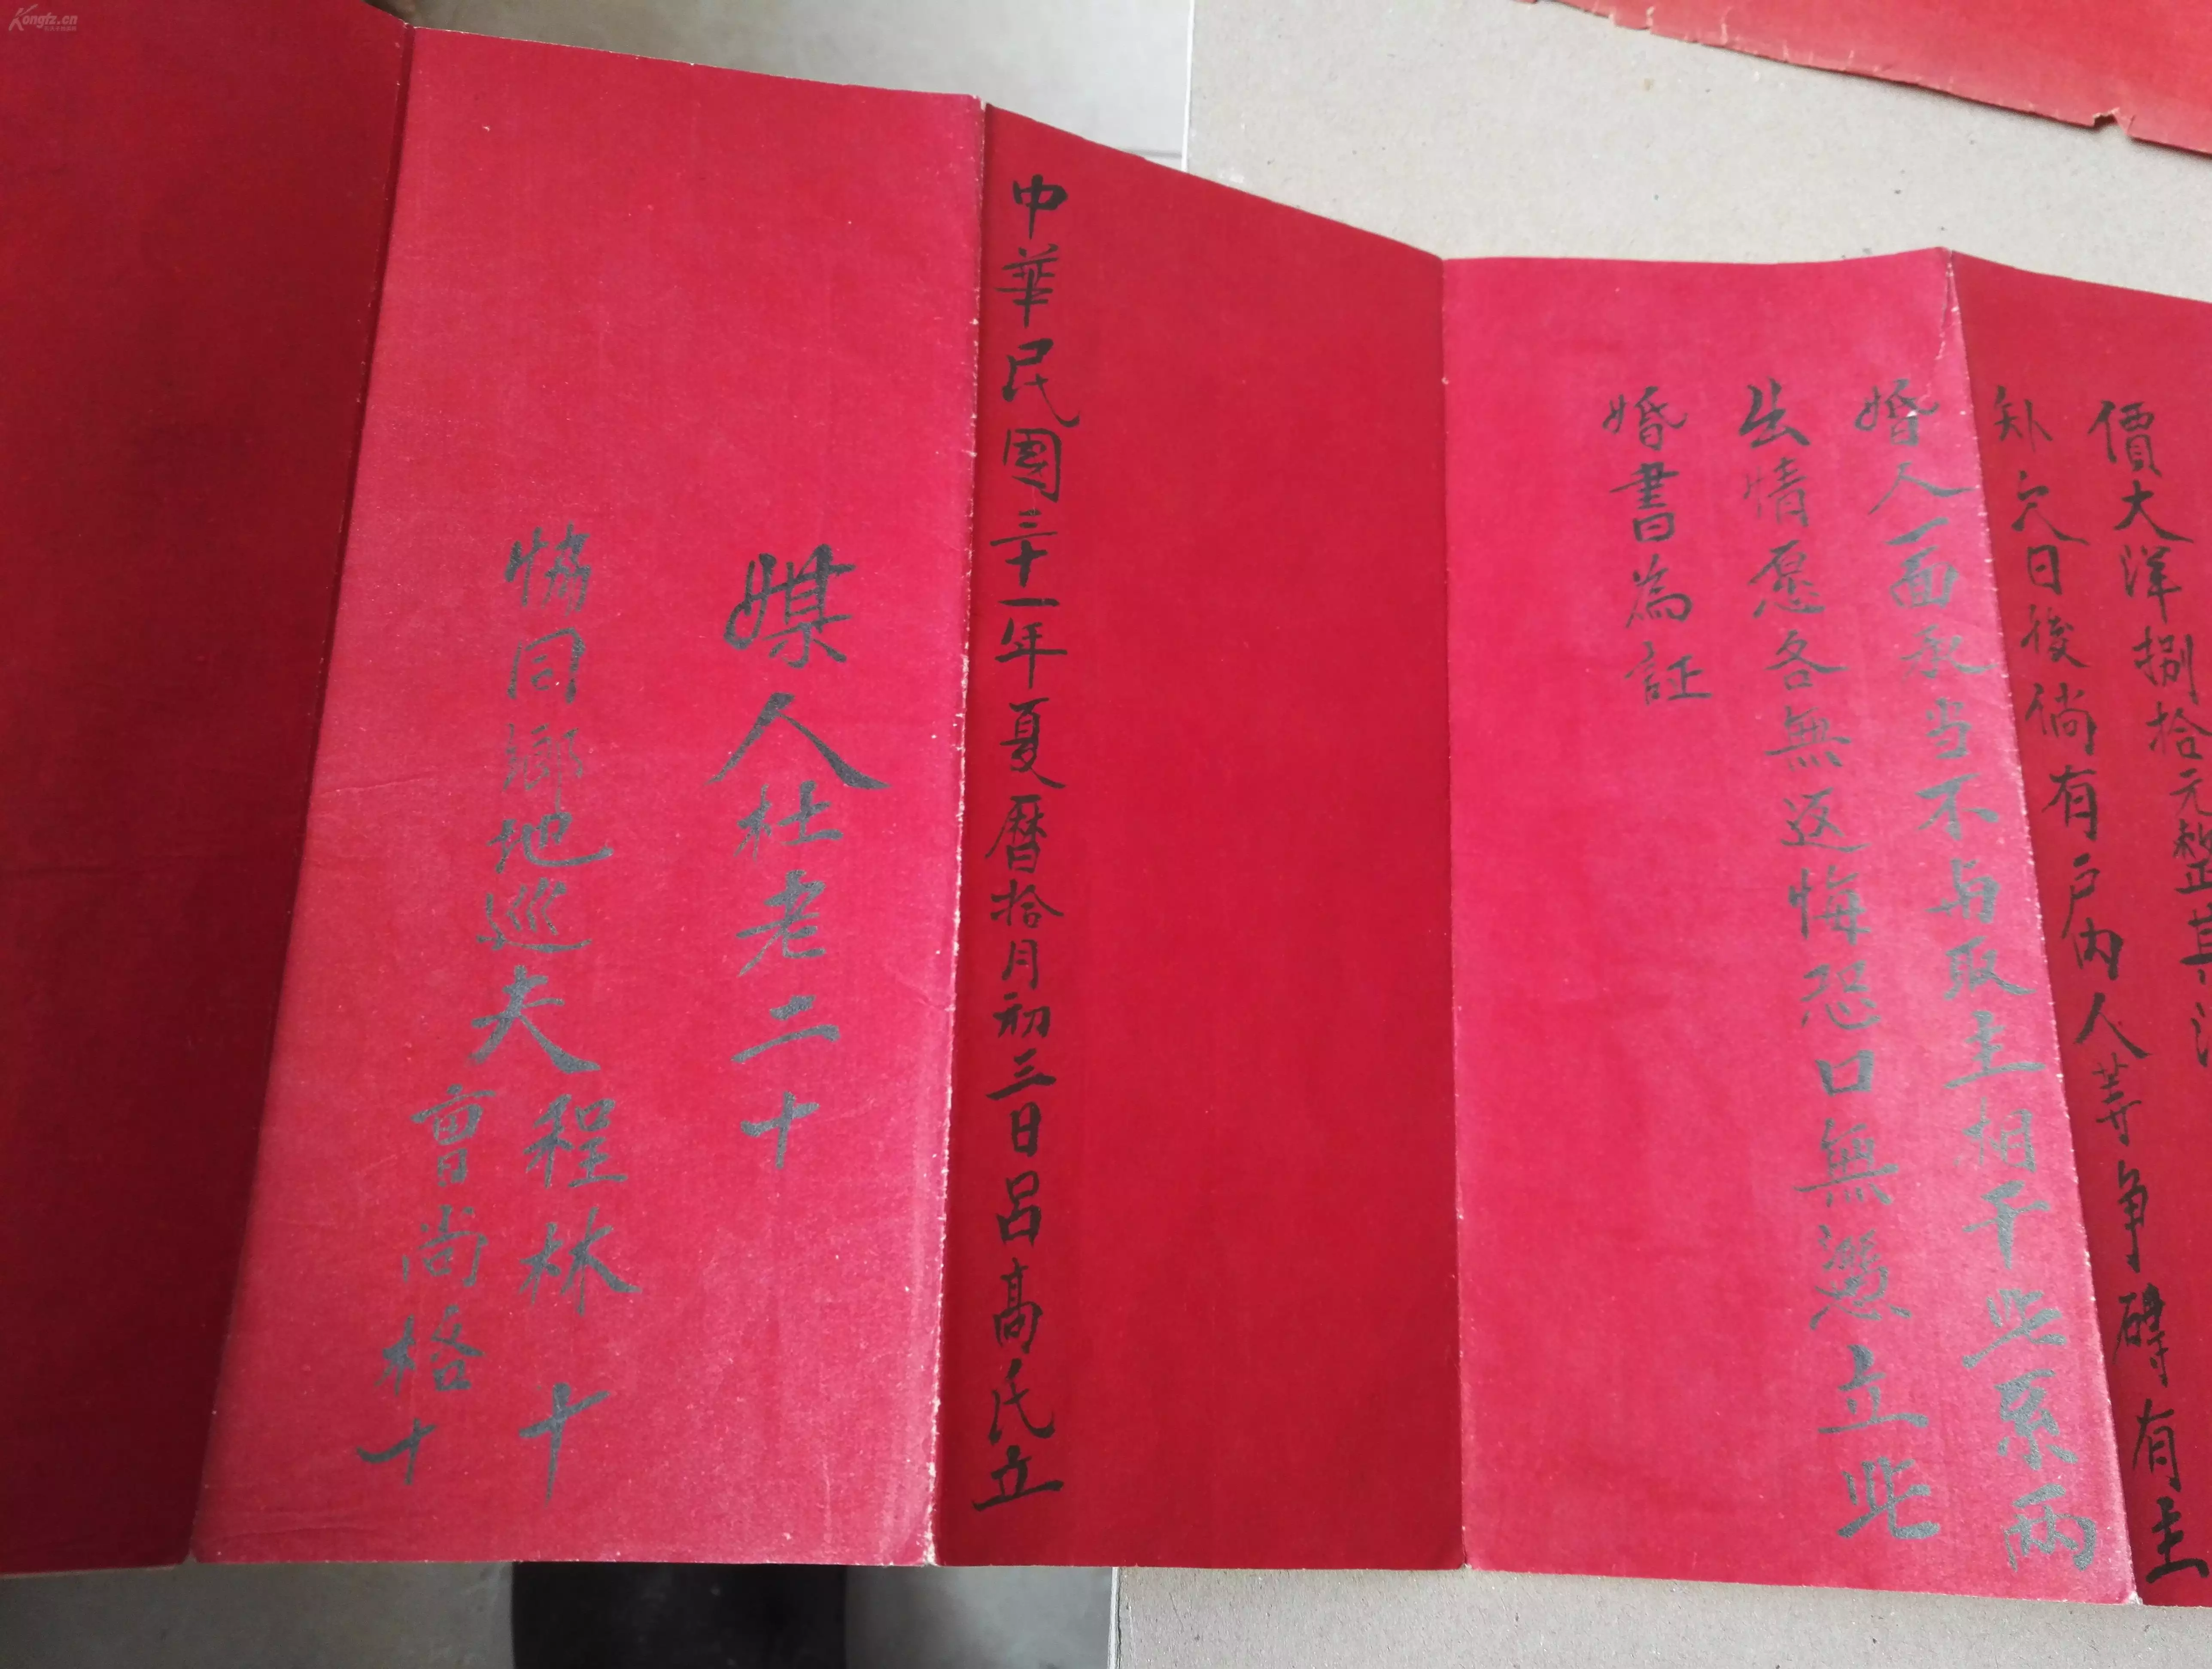 價大洋捌拾元整其洋
缺欠日後倘有户内人等争碍有主
婚人一面承当不与取主相干此系兩
出情愿各無返悔恐口無憑立此
婚書為証
中華民國三十一年夏曆拾月初三日呂高氏立
媒人杜老二十
協同鄉地巡夫程林十
曹尚格十
Kongfz.cn